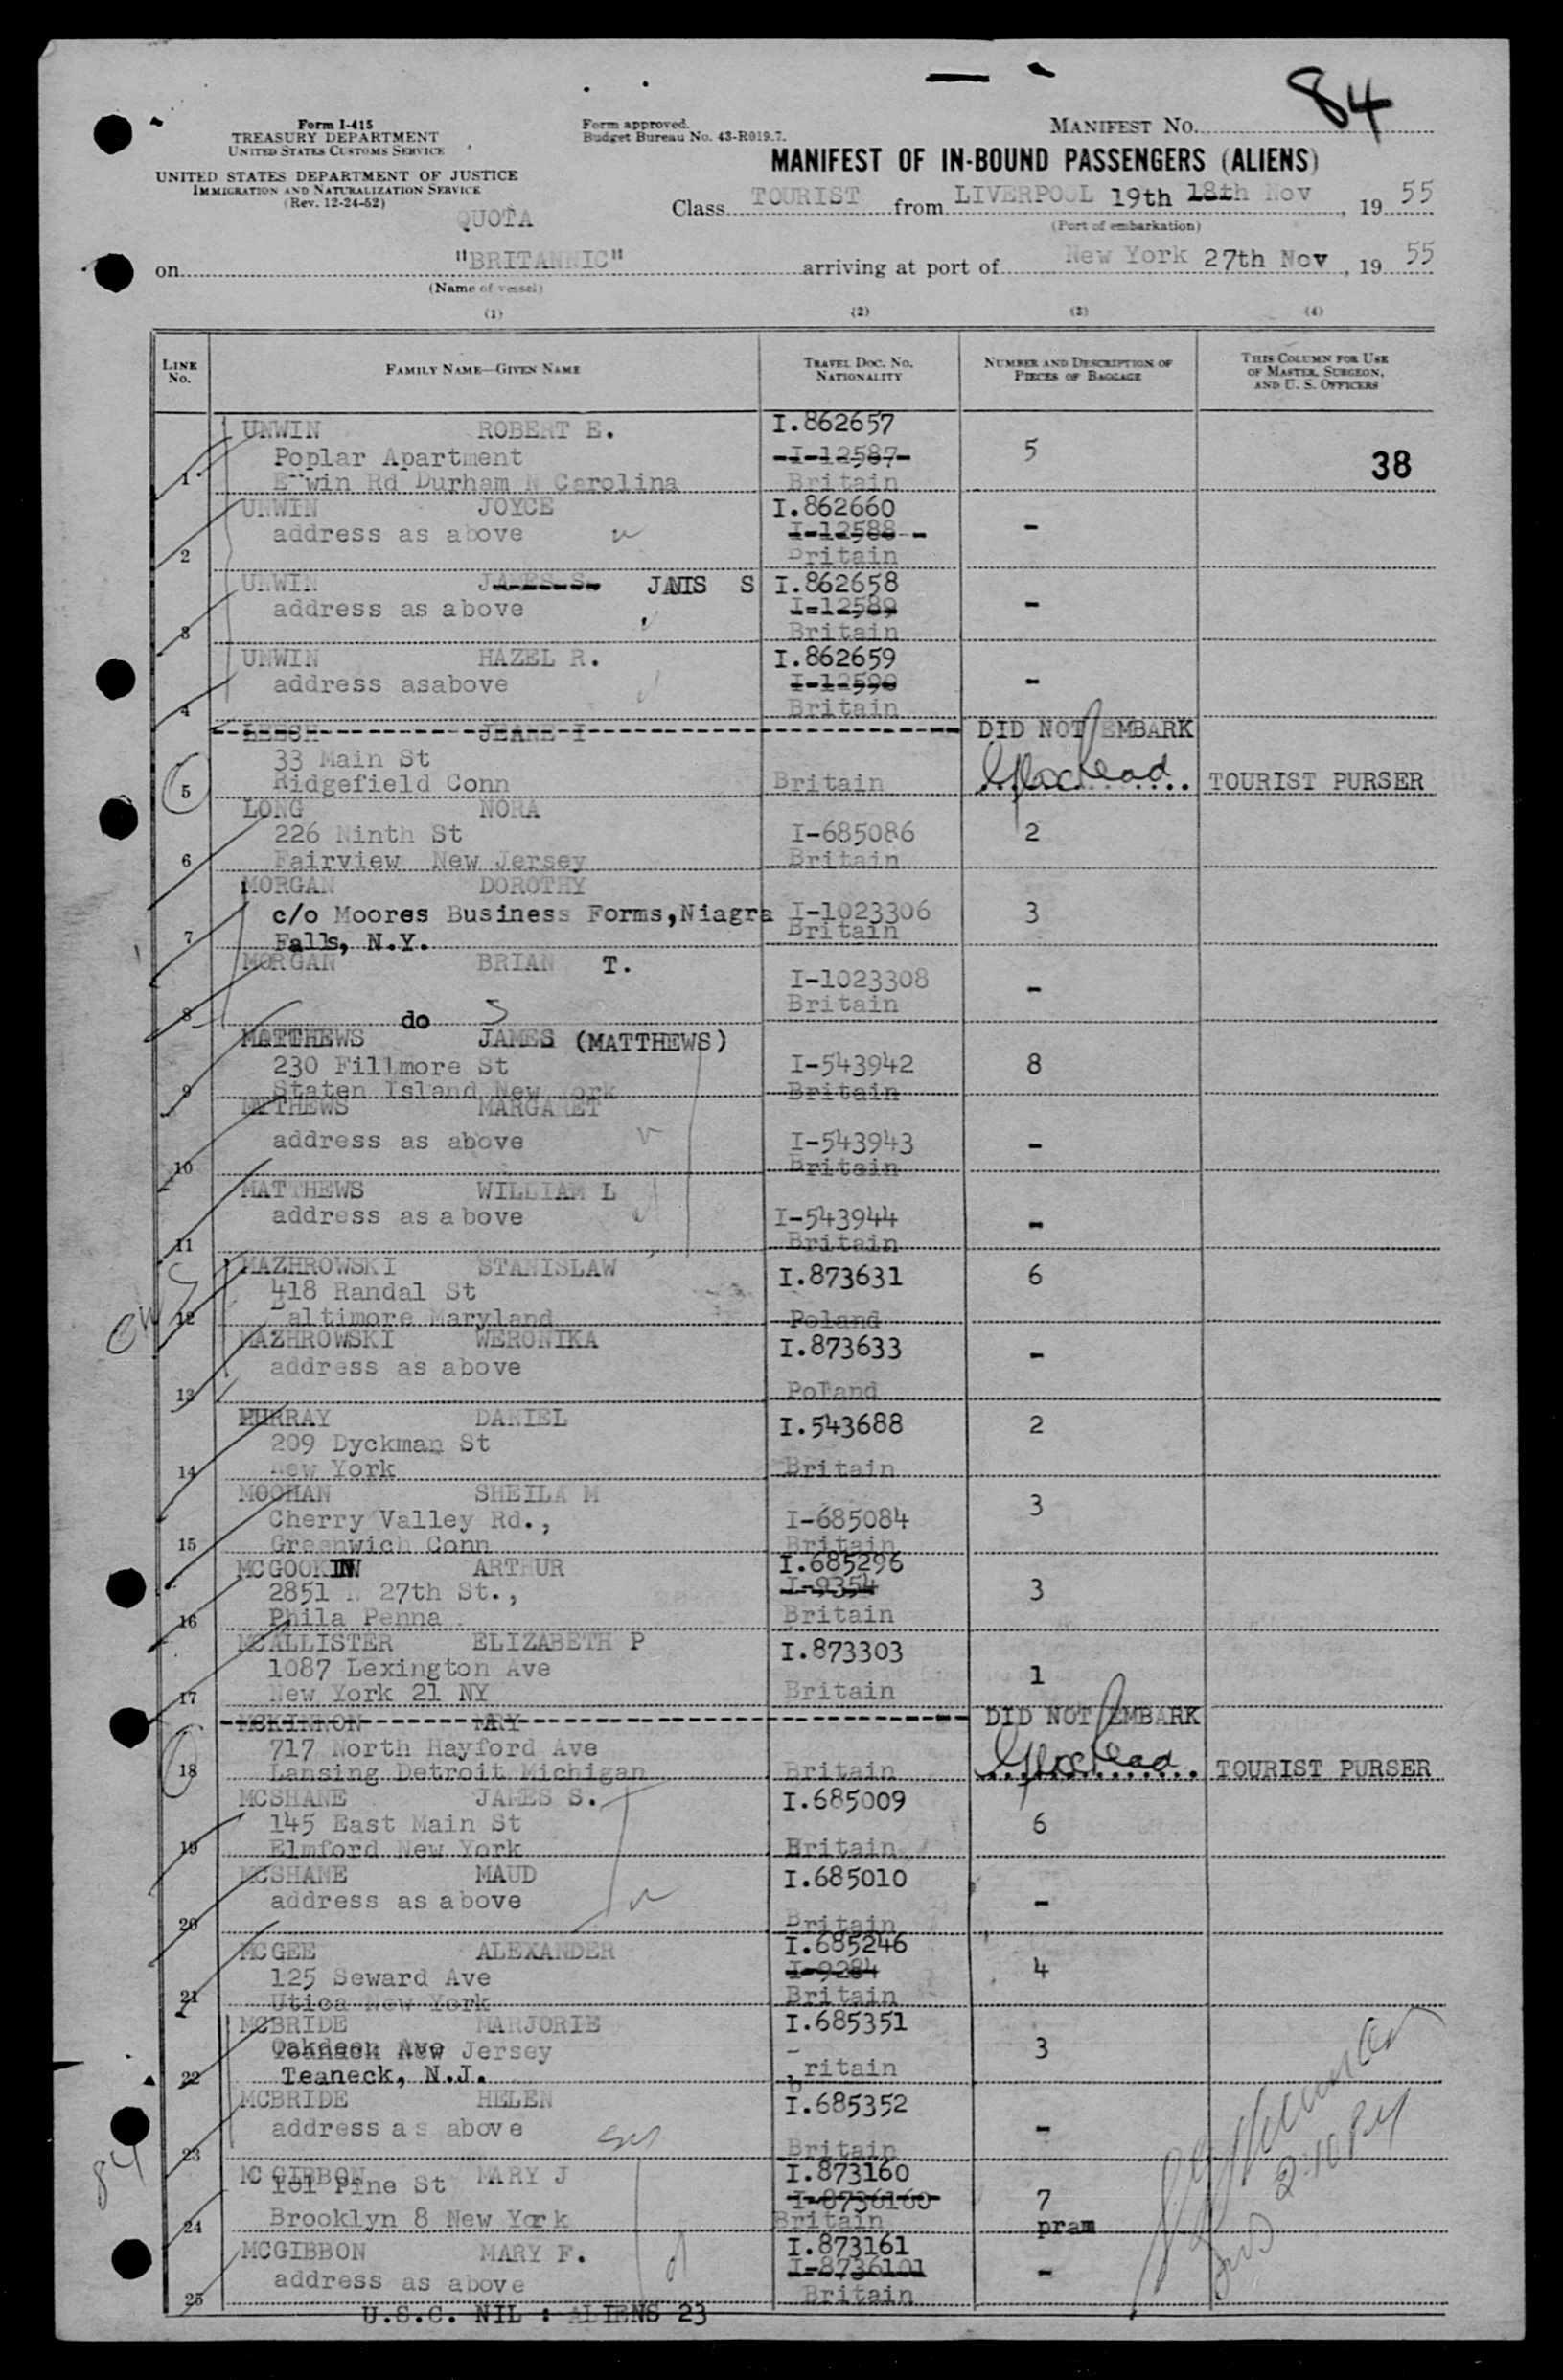 84
Form I-415
TREASURY DEPARTMENT
UNITED STATES CUSTOMS SERVICE
UNITED STATES DEPARTMENT OF JUSTICE
IMMIGRATION AND NATURALIZATION SERVICE
(Rev. 12-24-52)
Form approved.
Budget Bureau No. 43-R019.7.
MANIFEST NO.
MANIFEST OF IN-BOUND PASSENGERS (ALIENS)
QUOTA
Class TOURIST from LIVERPOOL 19th 18th Nov, 19 55
(Port of embarkation)
on "BRITANNIC" arriving at port of New York 27th Nov, 19 55
(Name of vessel)
(1) (2) (3) (4)
LINE No.
FAMILY NAME—GIVEN NAME
TRAVEL DOC. NO. NATIONALITY
NUMBER AND DESCRIPTION OF PIECES OF BAGGAGE
THIS COLUMN FOR USE OF MASTER, SURGEON, AND U. S. OFFICERS
UNWIN ROBERT E. I.862657
Poplar Apartment I-12587 5 38
1 Erwin Rd Durham N Carolina Britain
UNWIN JOYCE I.862660
address as above I-12588 -
2 Britain
UNWIN JAMES S. JANIS S I.862658
address as above I-12589 -
3 Britain
UNWIN HAZEL R. I.862659
address asabove I-12590 -
4 Britain
LEECH JEANE I DID NOT EMBARK
33 Main St
5 Ridgefield Conn Britain TOURIST PURSER
LONG NORA
226 Ninth St I-685086 2
6 Fairview New Jersey Britain
MORGAN DOROTHY
c/o Moores Business Forms,Niagra I-1023306 3
7 Falls, N.Y. Britain
MORGAN BRIAN T.
I-1023308 -
8 do Britain
MATTHEWS JAMES (MATTHEWS)
230 Fillmore St I-543942 8
9 Staten Island New York Britain
MATTHEWS MARGARET
address as above I-543943 -
10 Britain
MATTHEWS WILLIAM L
address as above I-543944 -
11 Britain
MAZHROWSKI STANISLAW I.873631 6
418 Randal St
12 Baltimore Maryland Poland
MAZHROWSKI WERONIKA I.873633 -
address as above
13 Poland
MURRAY DANIEL I.543688 2
209 Dyckman St
14 New York Britain
MOOHAN SHEILA M 3
Cherry Valley Rd., I-685084
15 Greenwich Conn Britain
MCGOOKIN ARTHUR I.685296
2851 N 27th St., I-9354 3
16 Phila Penna Britain
MCALLISTER ELIZABETH P I.873303
1087 Lexington Ave 1
17 New York 21 NY Britain
MCKINNON MRY DID NOT EMBARK
717 North Hayford Ave
18 Lansing Detroit Michigan Britain TOURIST PURSER
MCSHANE JAMES S. I.685009
145 East Main St 6
19 Elmford New York Britain
MCSHANE MAUD I.685010
address as above -
20 Britain
MCGEE ALEXANDER I.685246
125 Seward Ave I-9284 4
21 Utica New York Britain
MCBRIDE MARJORIE I.685351
Oakdeen Ave Teaneck New Jersey 3
22 Teaneck, N.J. Britain
MCBRIDE HELEN I.685352
address as above -
23 Britain
MC GIBBON MARY J I.873160
101 Pine St I-8736160 7
24 Brooklyn 8 New York Britain pram
MCGIBBON MARY F. I.873161
address as above I-8736101 -
25 Britain
U.S.C. NIL : ALIENS 23
84